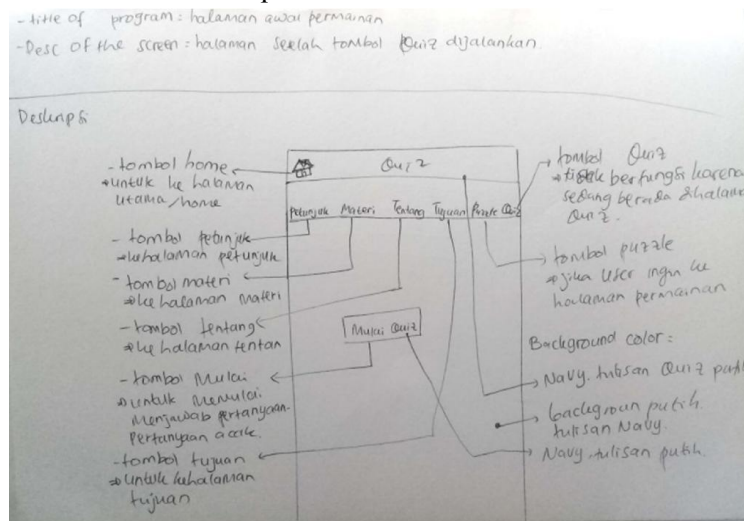 - title of program : halaman awal permainan
- Desc of the screen : halaman seelah tombol Quiz dijalankan.
Deskripsi
- tombol home
untuk ke halaman
utama/home
- tombol petunjuk
ke halaman petunjuk
- tombol materi
ke halaman materi
- tombol tentang
ke halaman tentan
- tombol Mulai
untuk Memulai
Menjawab pertanyaan.
Pertanyaan acak.
- tombol tujuan
untuk kehalaman
tujuan
Quiz
Petunjuk Materi Tentang Tujuan Puzzle Quiz
Mulai Quiz
tombol Quiz
tidak berfungsi karena
sedang berada dihalama
Quiz.
tombol puzzle
jika user ingin ke
halaman permainan
Background color :
Navy. tulisan Quiz puti
backgroun putih.
tulisan Navy.
Navy. tulisan putih.